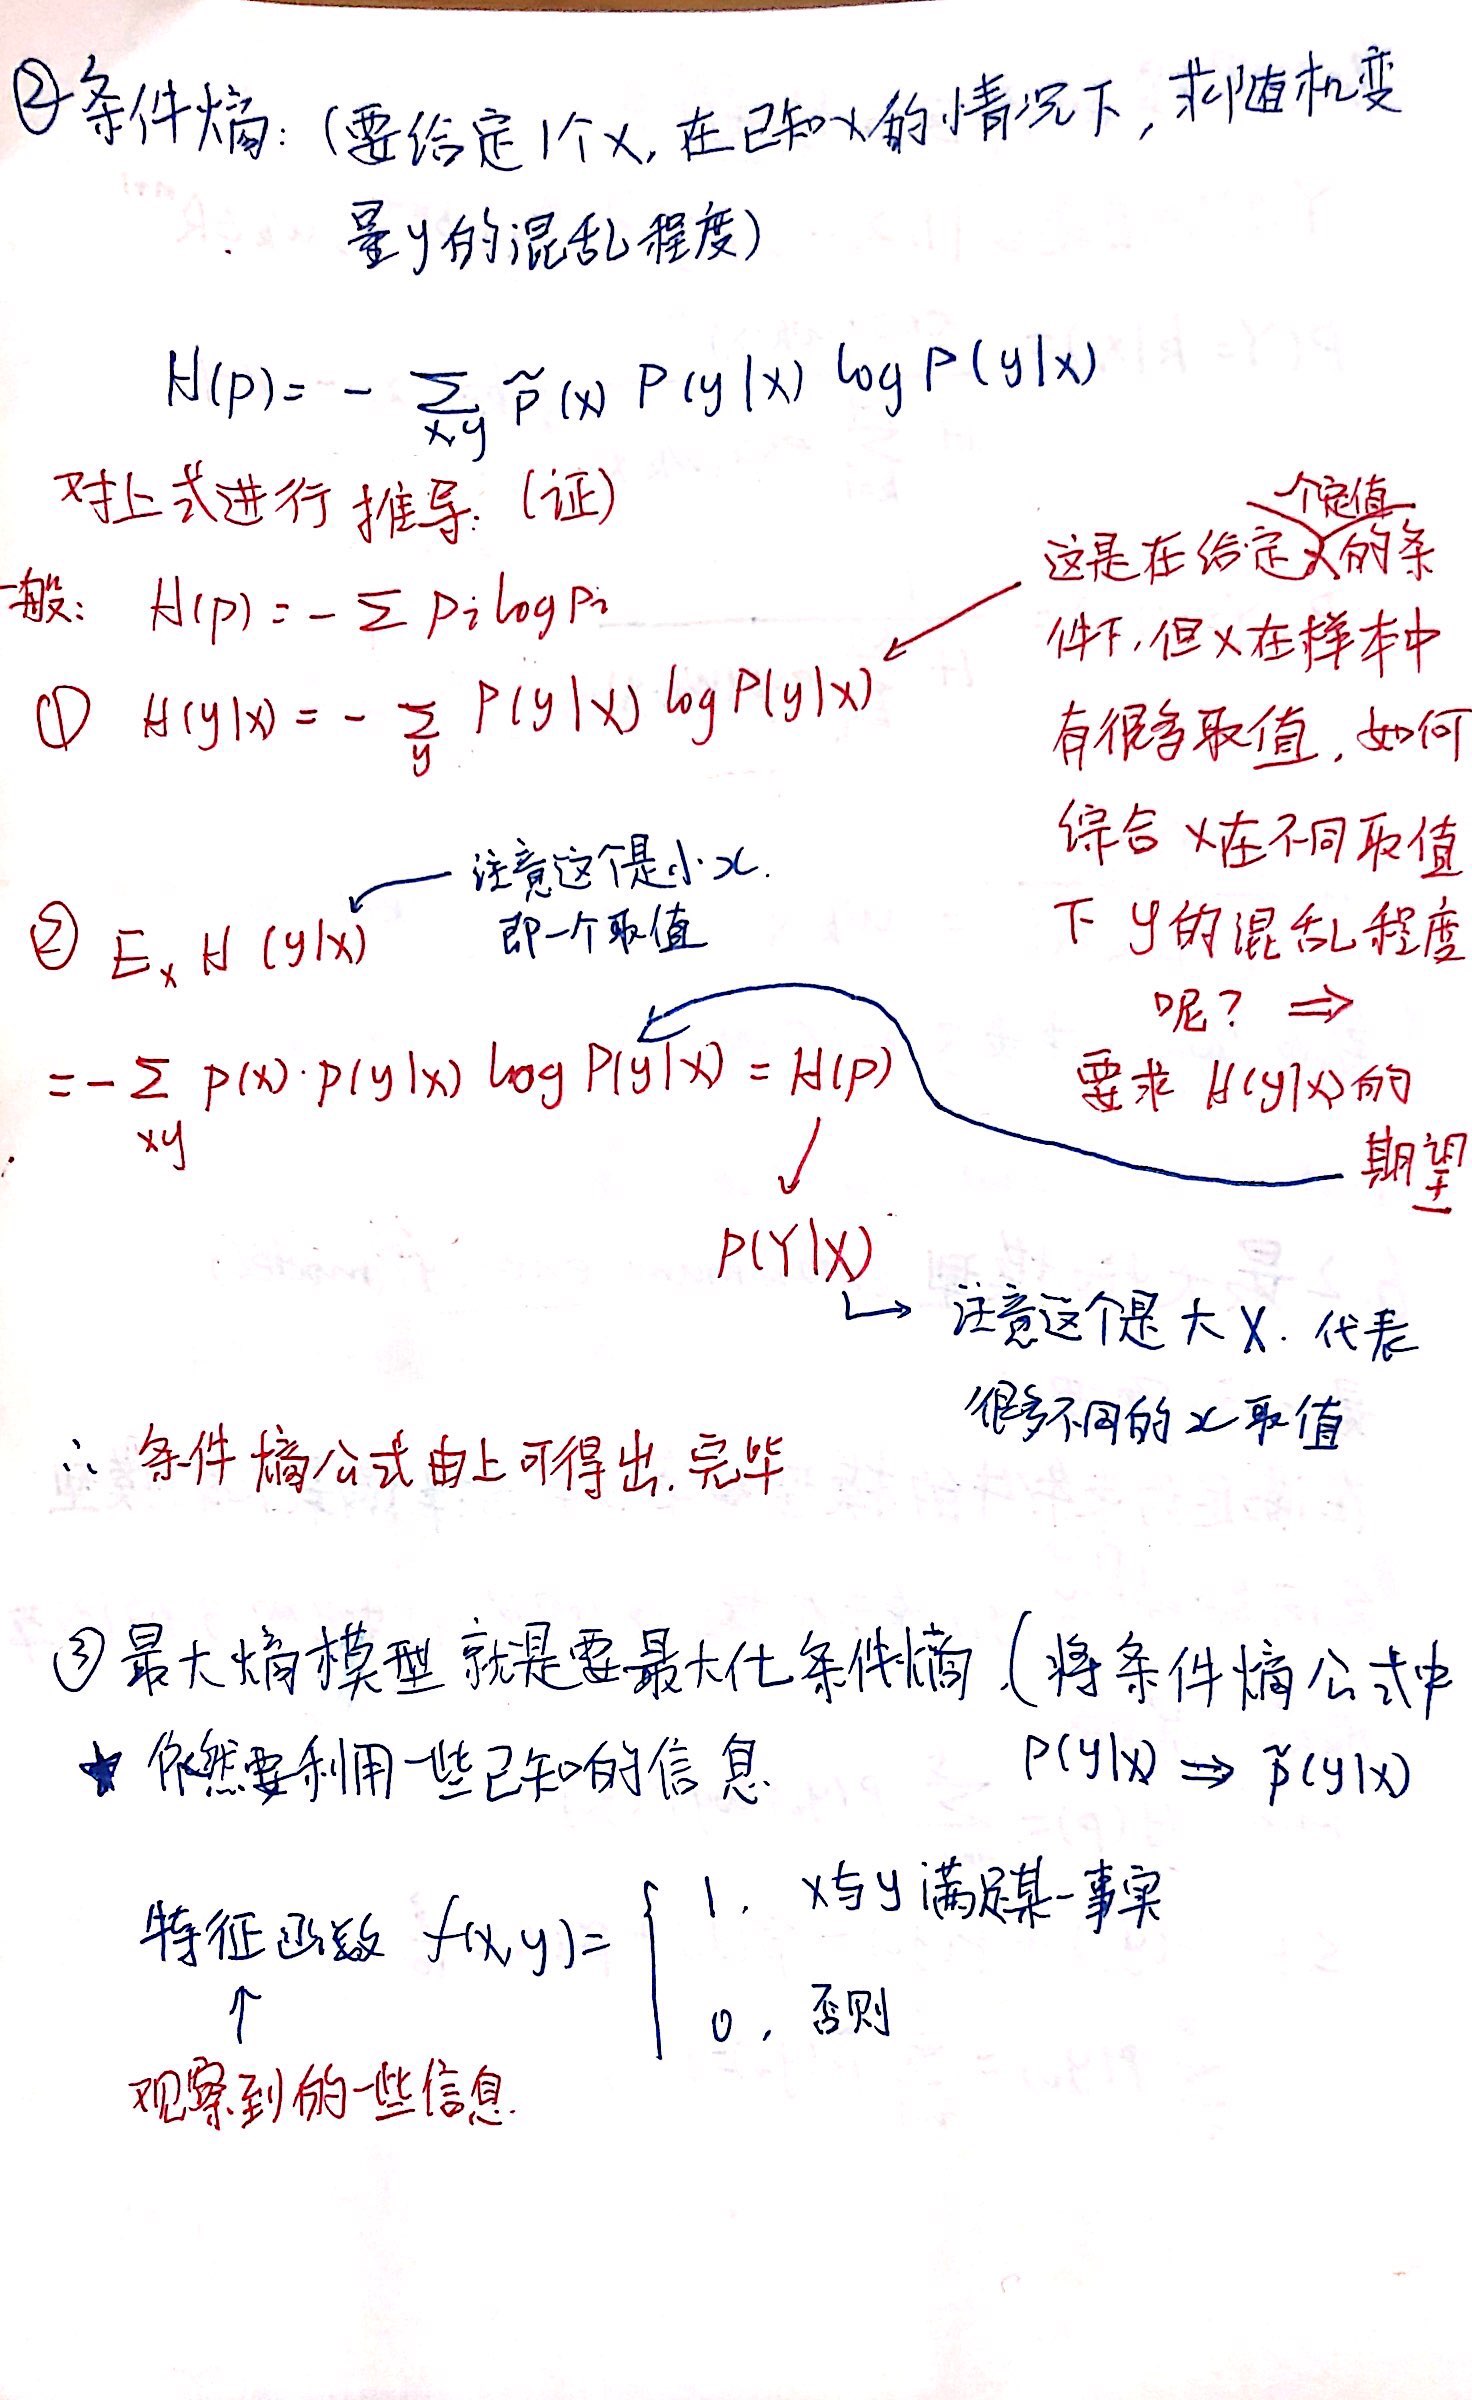 ②条件熵:(要给定1个x,在已知x的情况下,求随机变
量y的混乱程度)
H(p)= - Σ p̃(x) P(y|x) log P(y|x)
x,y
对上式进行推导:(证)
一般: H(p)=-Σ pi log pi
① H(y|x) = - Σ P(y|x) log P(y|x)
y
个定值
这是在给定x的条
件下,但x在样本中
有很多取值,如何
综合x在不同取值
下y的混乱程度
呢? ⇒
要求 H(y|x)的
期望
注意这个是小x.
即一个取值
② Eₓ H(y|x)
=-Σ p(x)·p(y|x) log P(y|x) = H(p)
xy
P(Y|X)
注意这个是大X.代表
很多不同的x取值
∴ 条件熵公式由上可得出.完毕
③最大熵模型就是要最大化条件熵.(将条件熵公式中
P(y|x) ⇒ p̃(y|x)
★ 依然要利用一些已知的信息.
特征函数 f(x,y)= { 1, x与y满足某一事实
0, 否则
↑
观察到的一些信息.